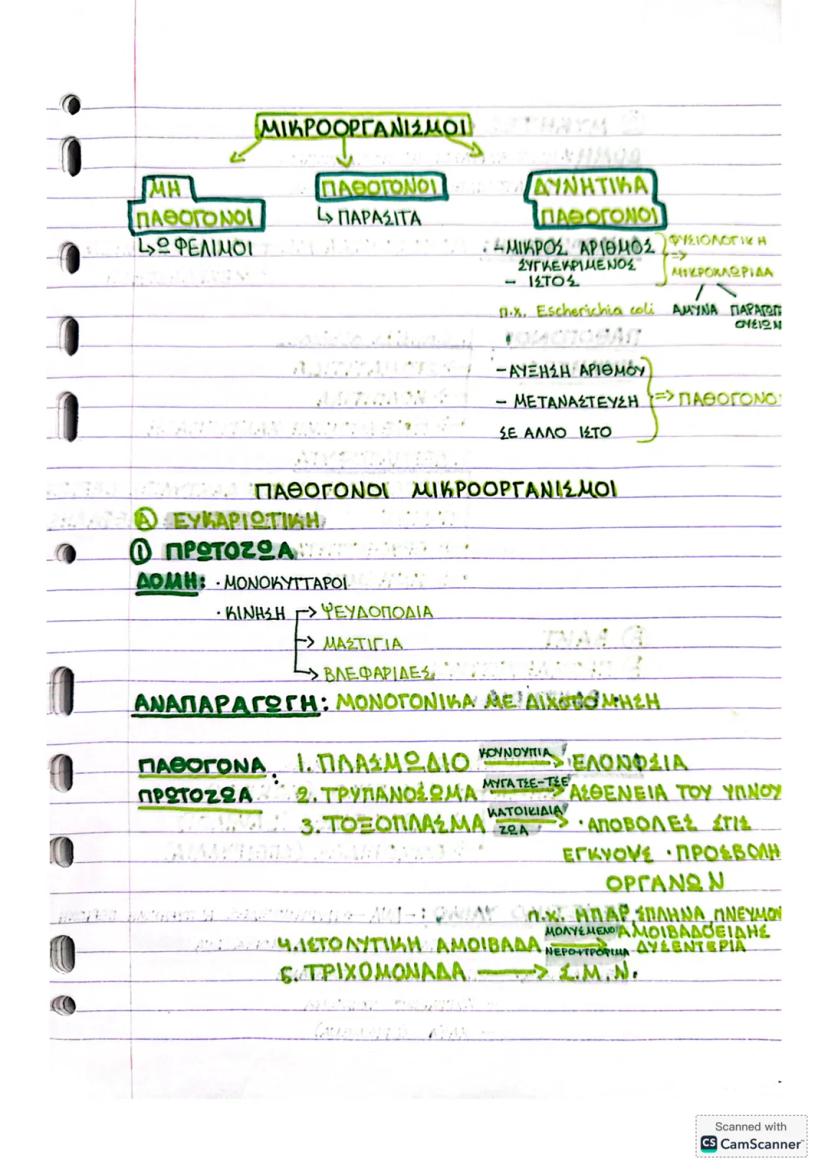 ΜΙΚΡΟΟΡΓΑΝΙΣΜΟΙ
ΜΗ ΠΑΘΟΓΟΝΟΙ
↳ ΩΦΕΛΙΜΟΙ
ΠΑΘΟΓΟΝΟΙ
↳ ΠΑΡΑΣΙΤΑ
ΔΥΝΗΤΙΚΑ
ΠΑΘΟΓΟΝΟΙ
- ΜΙΚΡΟΣ ΑΡΙΘΜΟΣ
ΣΥΓΚΕΚΡΙΜΕΝΟΣ
- ΙΣΤΟΣ
=> ΦΥΣΙΟΛΟΓΙΚΗ
ΜΙΚΡΟΧΛΩΡΙΔΑ
ΑΜΥΝΑ
ΟΥΣΙΩΝ
π.χ. Escherichia coli
- ΑΥΞΗΣΗ ΑΡΙΘΜΟΥ
- ΜΕΤΑΝΑΣΤΕΥΣΗ
ΣΕ ΑΛΛΟ ΙΣΤΟ
=> ΠΑΘΟΓΟΝΟ
ΠΑΘΟΓΟΝΟΙ ΜΙΚΡΟΟΡΓΑΝΙΣΜΟΙ
Ⓐ ΕΥΚΑΡΙΩΤΙΚΗ
① ΠΡΩΤΟΖΩΑ
ΔΟΜΗ: · ΜΟΝΟΚΥΤΤΑΡΟΙ
· ΚΙΝΗΣΗ → ΨΕΥΔΟΠΟΔΙΑ
→ ΜΑΣΤΙΓΙΑ
→ ΒΛΕΦΑΡΙΔΕΣ
ΑΝΑΠΑΡΑΓΩΓΗ: ΜΟΝΟΓΟΝΙΚΑ ΜΕ ΔΙΧΟΤΟΜΗΣΗ
ΠΑΘΟΓΟΝΑ
ΠΡΩΤΟΖΩΑ :
1. ΠΛΑΣΜΩΔΙΟ ΚΟΥΝΟΥΠΙΑ → ΕΛΟΝΟΣΙΑ
2. ΤΡΥΠΑΝΟΣΩΜΑ ΜΥΓΑ ΤΣΕ-ΤΣΕ → ΑΣΘΕΝΕΙΑ ΤΟΥ ΥΠΝΟΥ
3. ΤΟΞΟΠΛΑΣΜΑ ΚΑΤΟΙΚΙΔΙΑ ΖΩΑ → · ΑΠΟΒΟΛΕΣ ΣΤΙΣ
ΕΓΚΥΟΥΣ · ΠΡΟΣΒΟΛΗ
ΟΡΓΑΝΩΝ
π.χ. ΗΠΑΡ, ΣΠΛΗΝΑ, ΠΝΕΥΜΟ
4. ΙΣΤΟΛΥΤΙΚΗ ΑΜΟΙΒΑΔΑ ΜΟΛΥΣΜΕΝΟ ΝΕΡΟ+ΤΡΟΦΙΜΑ → ΑΜΟΙΒΑΔΟΕΙΔΗΣ
ΔΥΣΕΝΤΕΡΙΑ
5. ΤΡΙΧΟΜΟΝΑΔΑ → Σ.Μ.Ν.
Scanned with
CS CamScanner